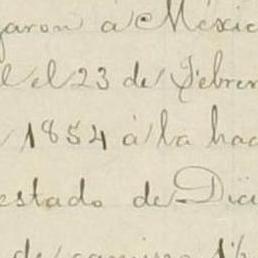 garon á Méxic
l el 23 de Febrer
1854 á la hac
estado de Dic
de camino 1½